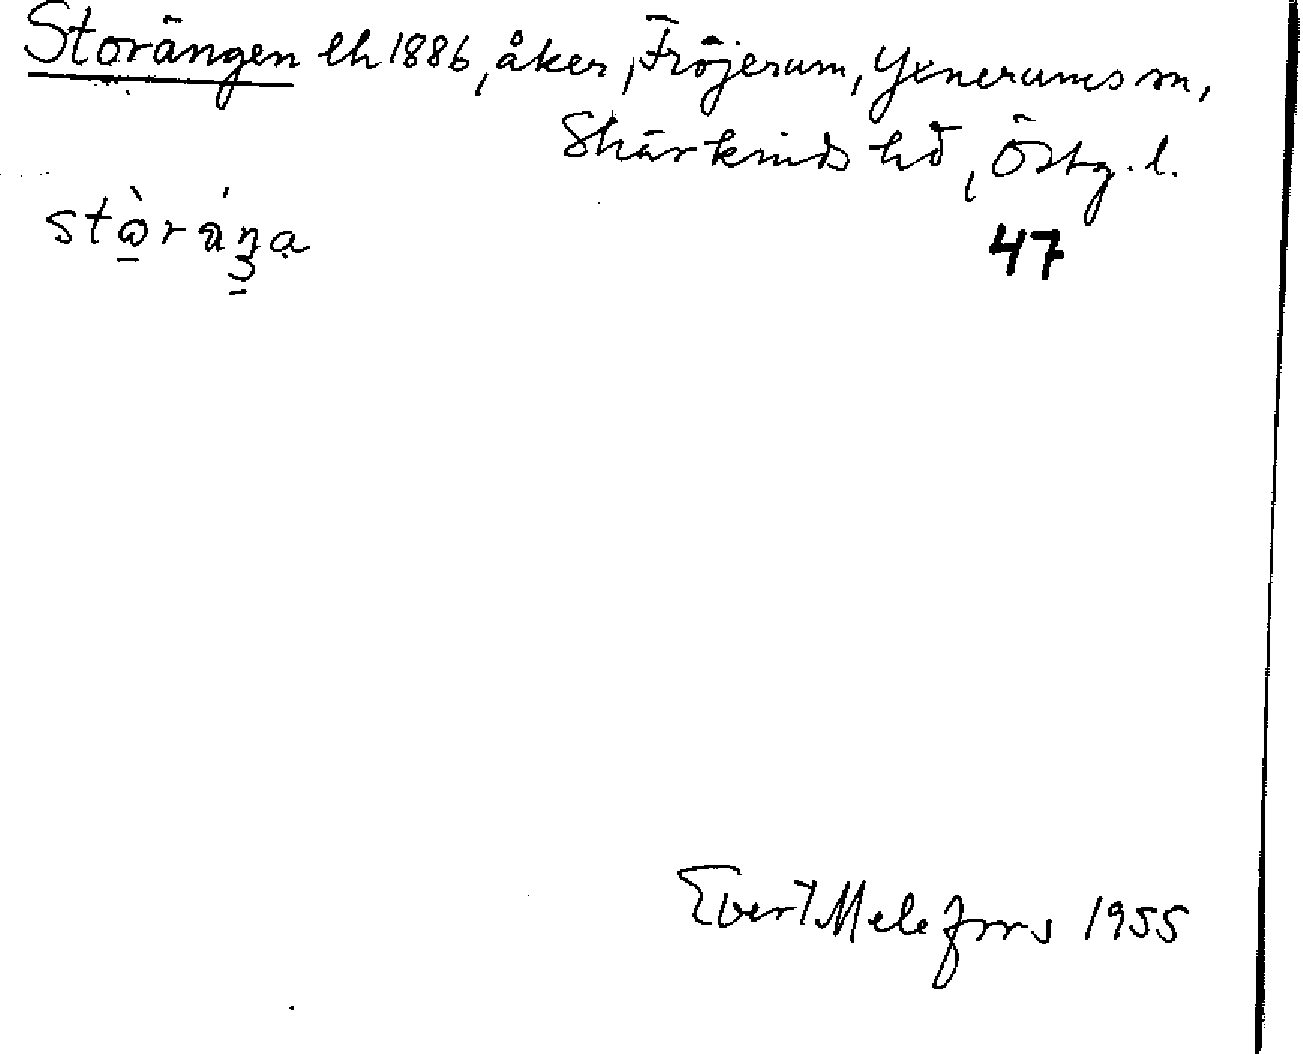 Storängen lh 1886, åker, Fröjerum, Yxnerums sn,
Skärkinds hd, Östg. l.
stòráŋa
47
Evert Melefors 1955